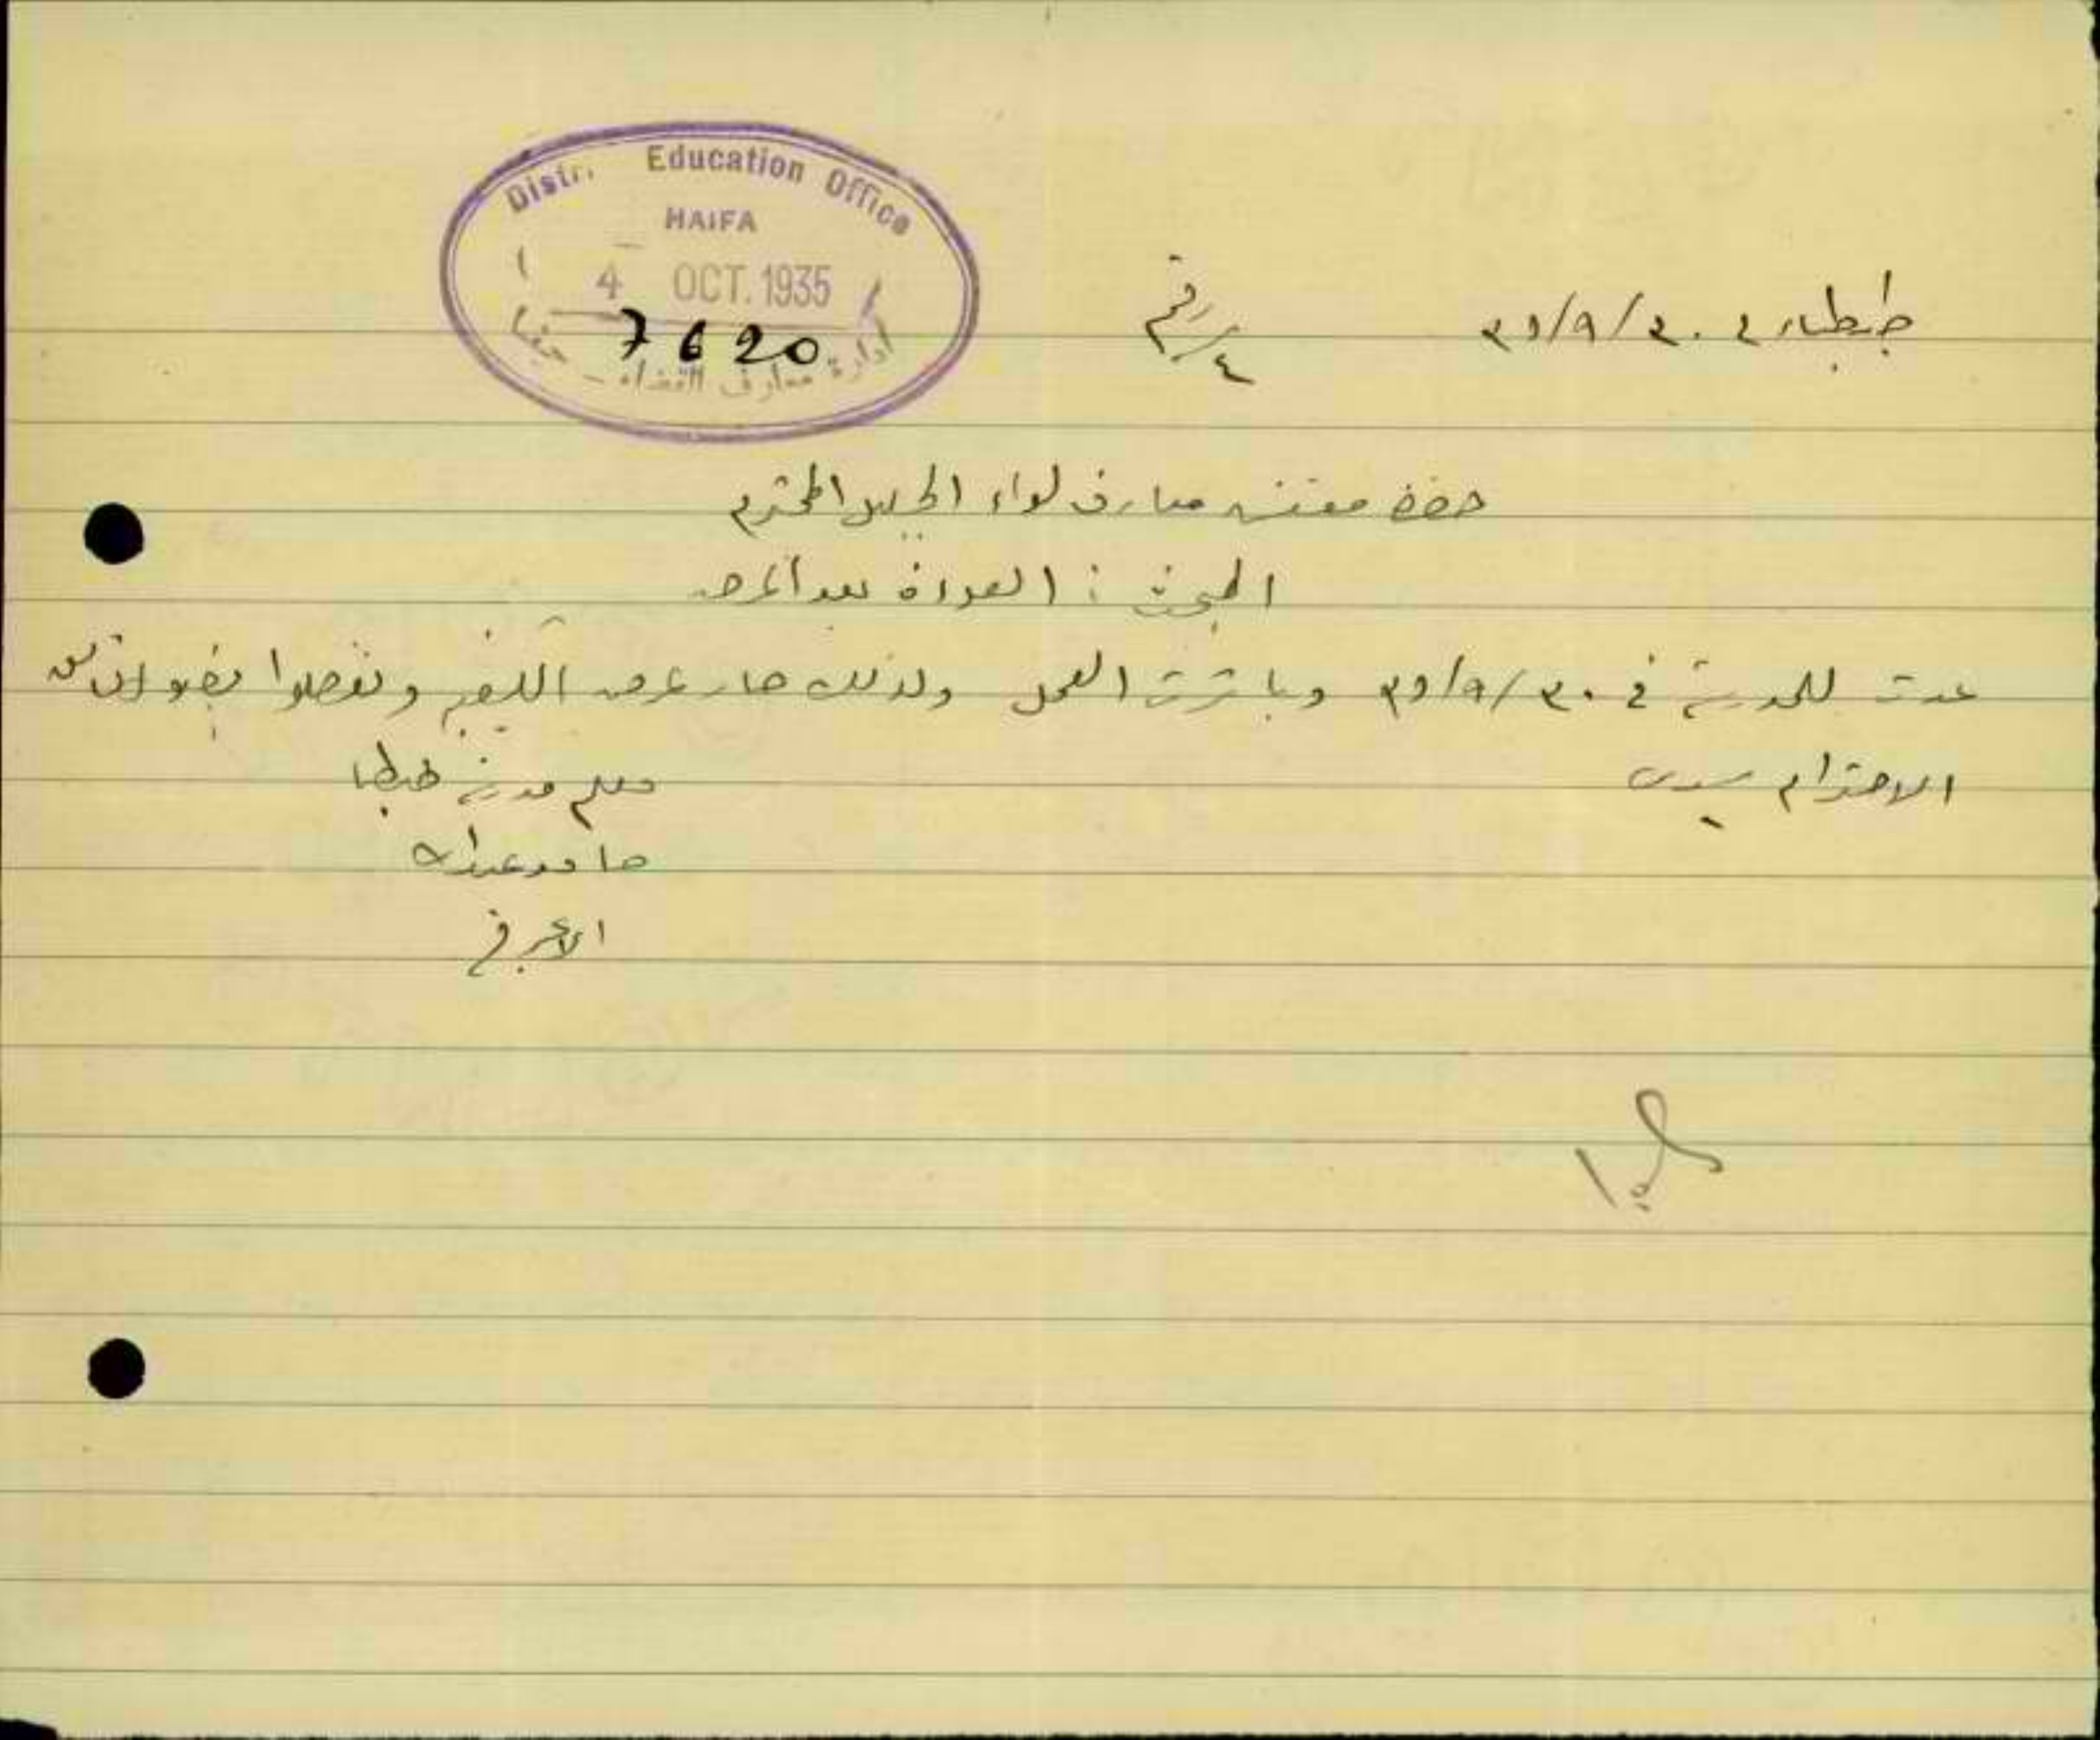 Distr. Education Office
HAIFA
4 OCT. 1935
7620
ادارة معارف القضاء - حيفا
طبطبا في ٣٠/٩/٣٥
رقم/٤
حضرة مفتش معارف لواء الجليل المحترم
المبحث : العودة بعد المرض
عدت للمدرسة في ٣٠/٩/٣٥ وباشرت العمل ولذلك صار عرض الكيفية وتفضلوا بقبول فائق
الاحترام سيدي
معلم مدرسة طبطبا
حامد عبدالله